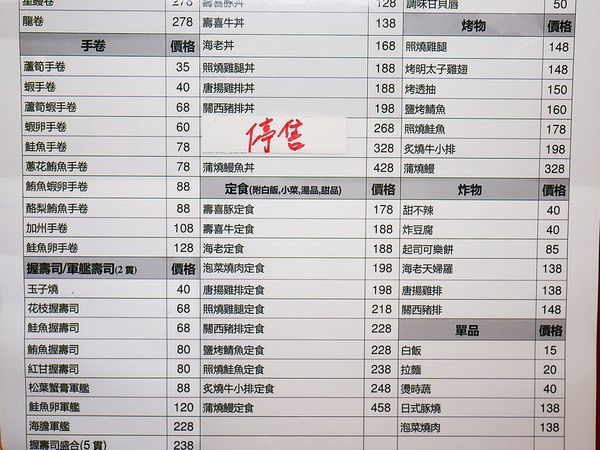 龍卷 278
手卷 價格
蘆筍手卷 35
蝦手卷 40
蘆筍蝦手卷 68
蝦卵手卷 60
鮭魚手卷 78
蔥花鮪魚手卷 78
鮪魚蝦卵手卷 88
酪梨鮪魚手卷 88
加州手卷 108
鮭魚卵手卷 128
握壽司/軍艦壽司(2貫) 價格
玉子燒 40
花枝握壽司 68
鮭魚握壽司 68
鮪魚握壽司 80
紅甘握壽司 80
松葉蟹膏軍艦 88
鮭魚卵軍艦 120
海膽軍艦 228
握壽司盛合(5貫) 238
壽喜豚丼 128
壽喜牛丼 138
海老丼 168
照燒雞腿丼 188
唐揚雞排丼 188
關西豬排丼 198
停售 268
328
蒲燒鰻魚丼 428
定食(附白飯,小菜,湯品,甜品) 價格
壽喜豚定食 178
壽喜牛定食 188
海老定食 188
泡菜燒肉定食 198
唐揚雞排定食 198
照燒雞腿定食 218
關西豬排定食 228
鹽烤鯖魚定食 228
照燒鮭魚定食 238
炙燒牛小排定食 248
蒲燒鰻定食 458
調味甘貝唇 50
烤物 價格
照燒雞腿 148
烤明太子雞翅 148
烤透抽 150
鹽烤鯖魚 160
照燒鮭魚 178
炙燒牛小排 198
蒲燒鰻 328
炸物 價格
甜不辣 40
炸豆腐 40
起司可樂餅 85
海老天婦羅 138
唐揚雞排 138
關西豬排 148
單品 價格
白飯 15
拉麵 20
燙時蔬 40
日式豚燒 138
泡菜燒肉 138